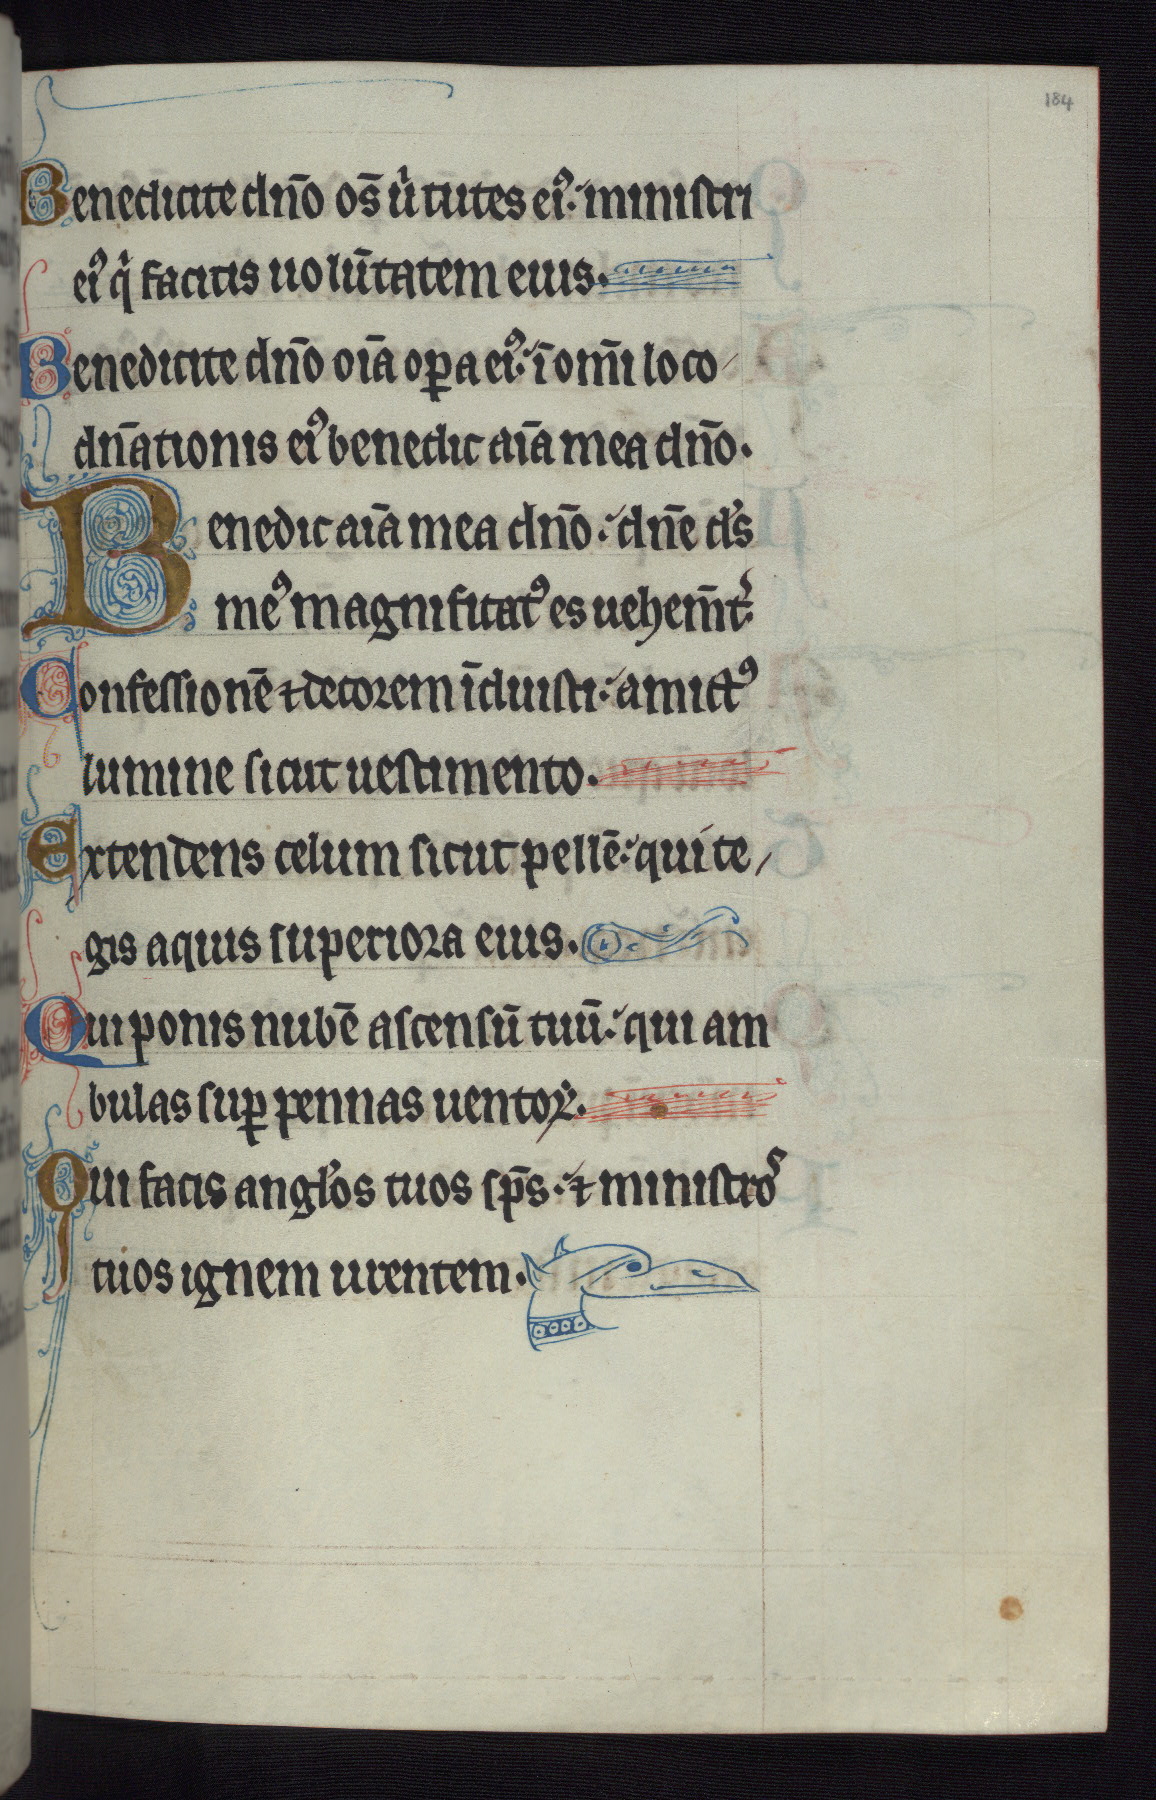 184
Benedicite dn̄o os̄ uͥtutes eiꝰ: ministri
eiꝰ qͥ facitis uolūtatem eius.
Benedicite dn̄o oīa oꝑa eiꝰ: ī om̄i loco
dn̄ationis eiꝰ benedic aīa mea dn̄o.
Benedic aīa mea dn̄o: dn̄e ds̓
meꝰ magnificatꝰ es uehem̄t̓.
Confessionē ⁊ decorem īduisti: amictꝰ
lumine sicut uestimento.
Extendens celum sicut pellē: qui te
gis aquis superiora eius.
Qui ponis nubē ascensū tuū: qui am
bulas suꝑ pennas uentoꝝ.
Qui facis angl̓os tuos sp̄s: ⁊ ministroˢ
tuos ignem urentem.